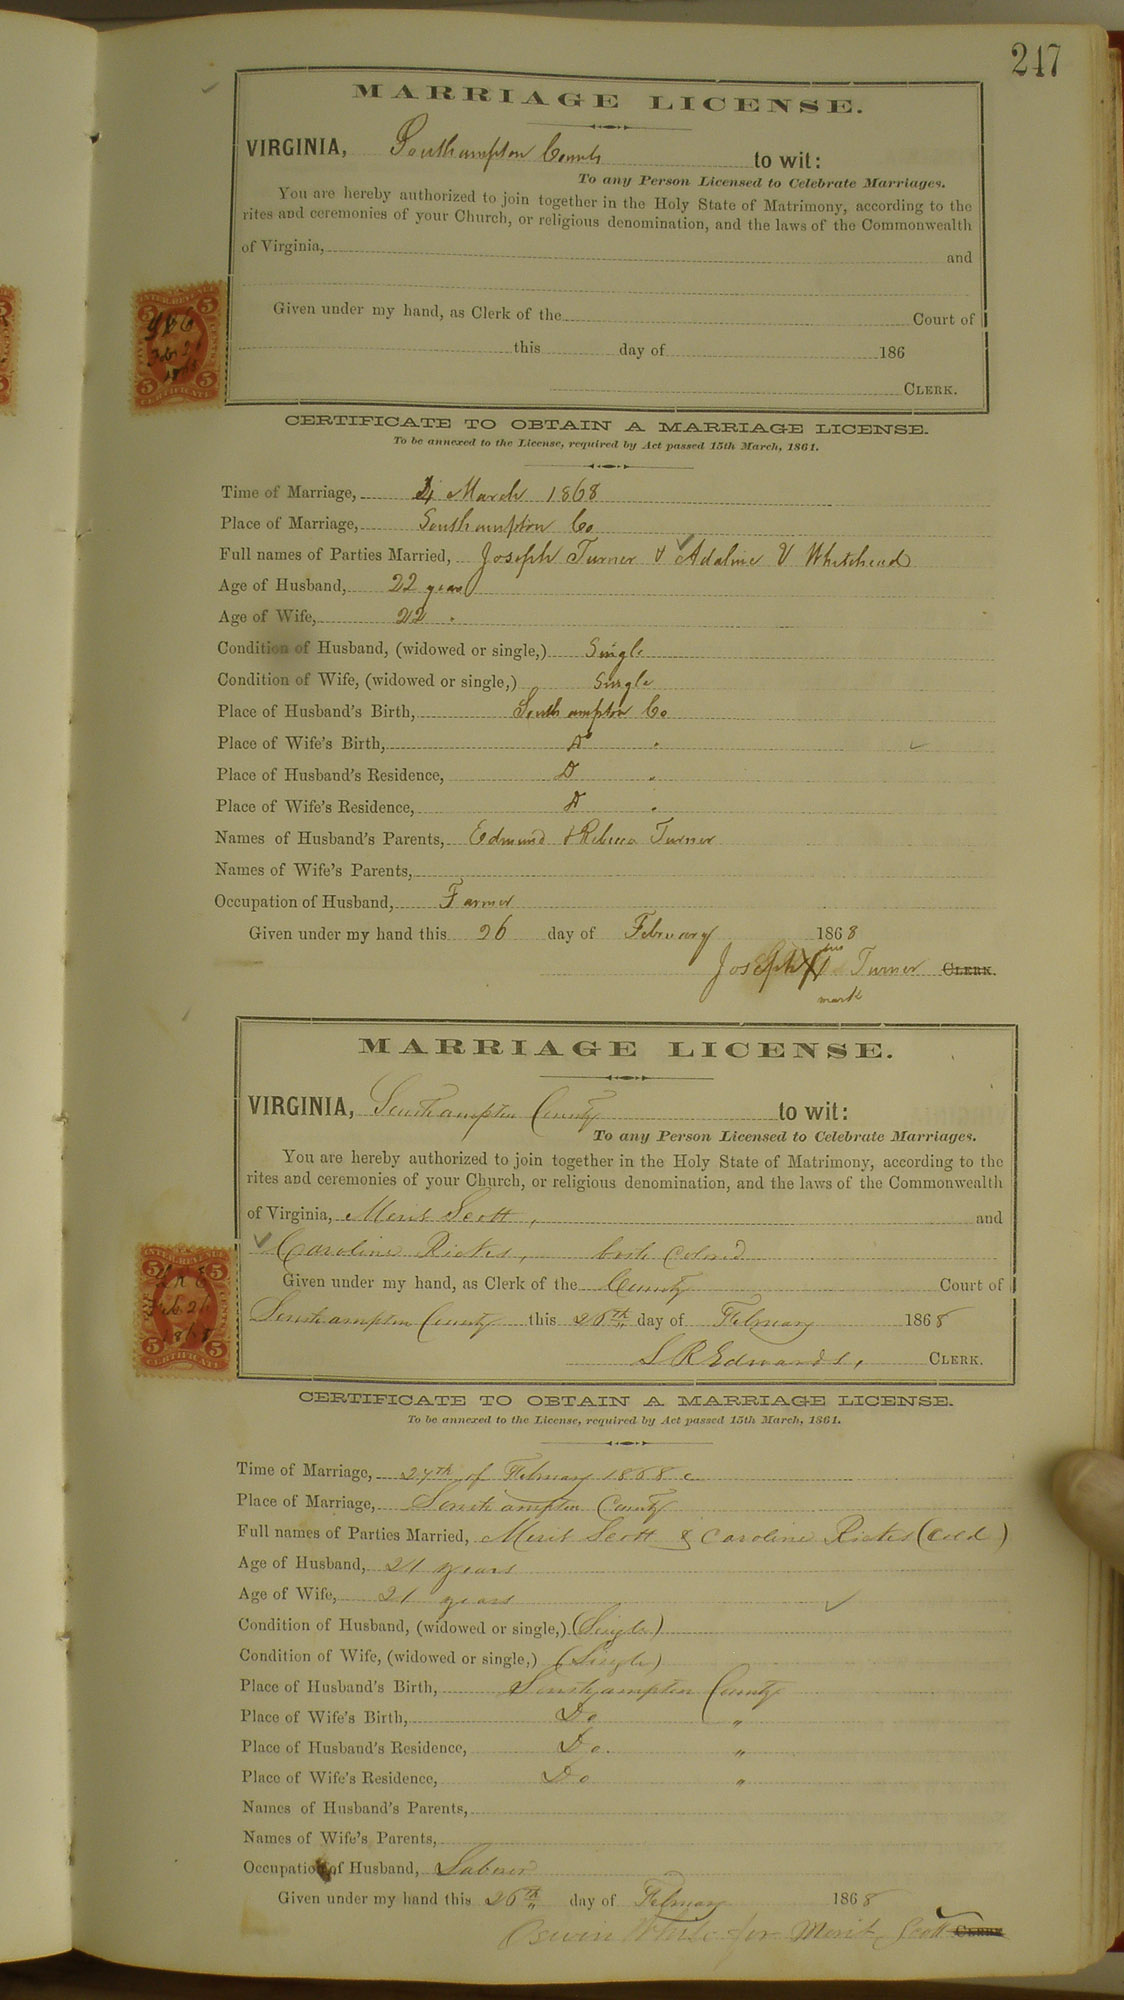 247
MARRIAGE LICENSE.
VIRGINIA, Southampton County to wit:
To any Person Licensed to Celebrate Marriages.
You are hereby authorized to join together in the Holy State of Matrimony, according to the
rites and ceremonies of your Church, or religious denomination, and the laws of the Commonwealth
of Virginia, and
Given under my hand, as Clerk of the Court of
this day of 186
CLERK.
INTER. REVENUE
5 5
Feb 26
1868
5 CENTS 5
CERTIFICATE
CERTIFICATE TO OBTAIN A MARRIAGE LICENSE.
To be annexed to the License, required by Act passed 15th March, 1861.
Time of Marriage, 4 March 1868
Place of Marriage, Southampton Co
Full names of Parties Married, Joseph Turner & Adaline V Whitehead
Age of Husband, 22 years
Age of Wife, 22 "
Condition of Husband, (widowed or single,) Single
Condition of Wife, (widowed or single,) Single
Place of Husband's Birth, Southampton Co
Place of Wife's Birth, Do "
Place of Husband's Residence, Do "
Place of Wife's Residence, Do "
Names of Husband's Parents, Edmund & Rebecca Turner
Names of Wife's Parents,
Occupation of Husband, Farmer
Given under my hand this 26 day of February 1868
his
Joseph X Turner CLERK.
mark
MARRIAGE LICENSE.
VIRGINIA, Southampton County to wit:
To any Person Licensed to Celebrate Marriages.
You are hereby authorized to join together in the Holy State of Matrimony, according to the
rites and ceremonies of your Church, or religious denomination, and the laws of the Commonwealth
of Virginia, Merit Scott, and
Caroline Ricks, both colored
Given under my hand, as Clerk of the County Court of
Southampton County this 26th day of February 1868
L R Edwards, CLERK.
INTER. REVENUE
5 5
L R E
Feb 26
1868
5 5
CERTIFICATE
CERTIFICATE TO OBTAIN A MARRIAGE LICENSE.
To be annexed to the License, required by Act passed 15th March, 1861.
Time of Marriage, 27th of February 1868
Place of Marriage, Southampton County
Full names of Parties Married, Merit Scott & Caroline Ricks (Cold)
Age of Husband, 21 years
Age of Wife, 21 years
Condition of Husband, (widowed or single,) (Single)
Condition of Wife, (widowed or single,) (Single)
Place of Husband's Birth, Southampton County
Place of Wife's Birth, Do "
Place of Husband's Residence, Do. "
Place of Wife's Residence, Do "
Names of Husband's Parents,
Names of Wife's Parents,
Occupation of Husband, Laborer
Given under my hand this 26th day of February 1868
White for Merit Scott CLERK